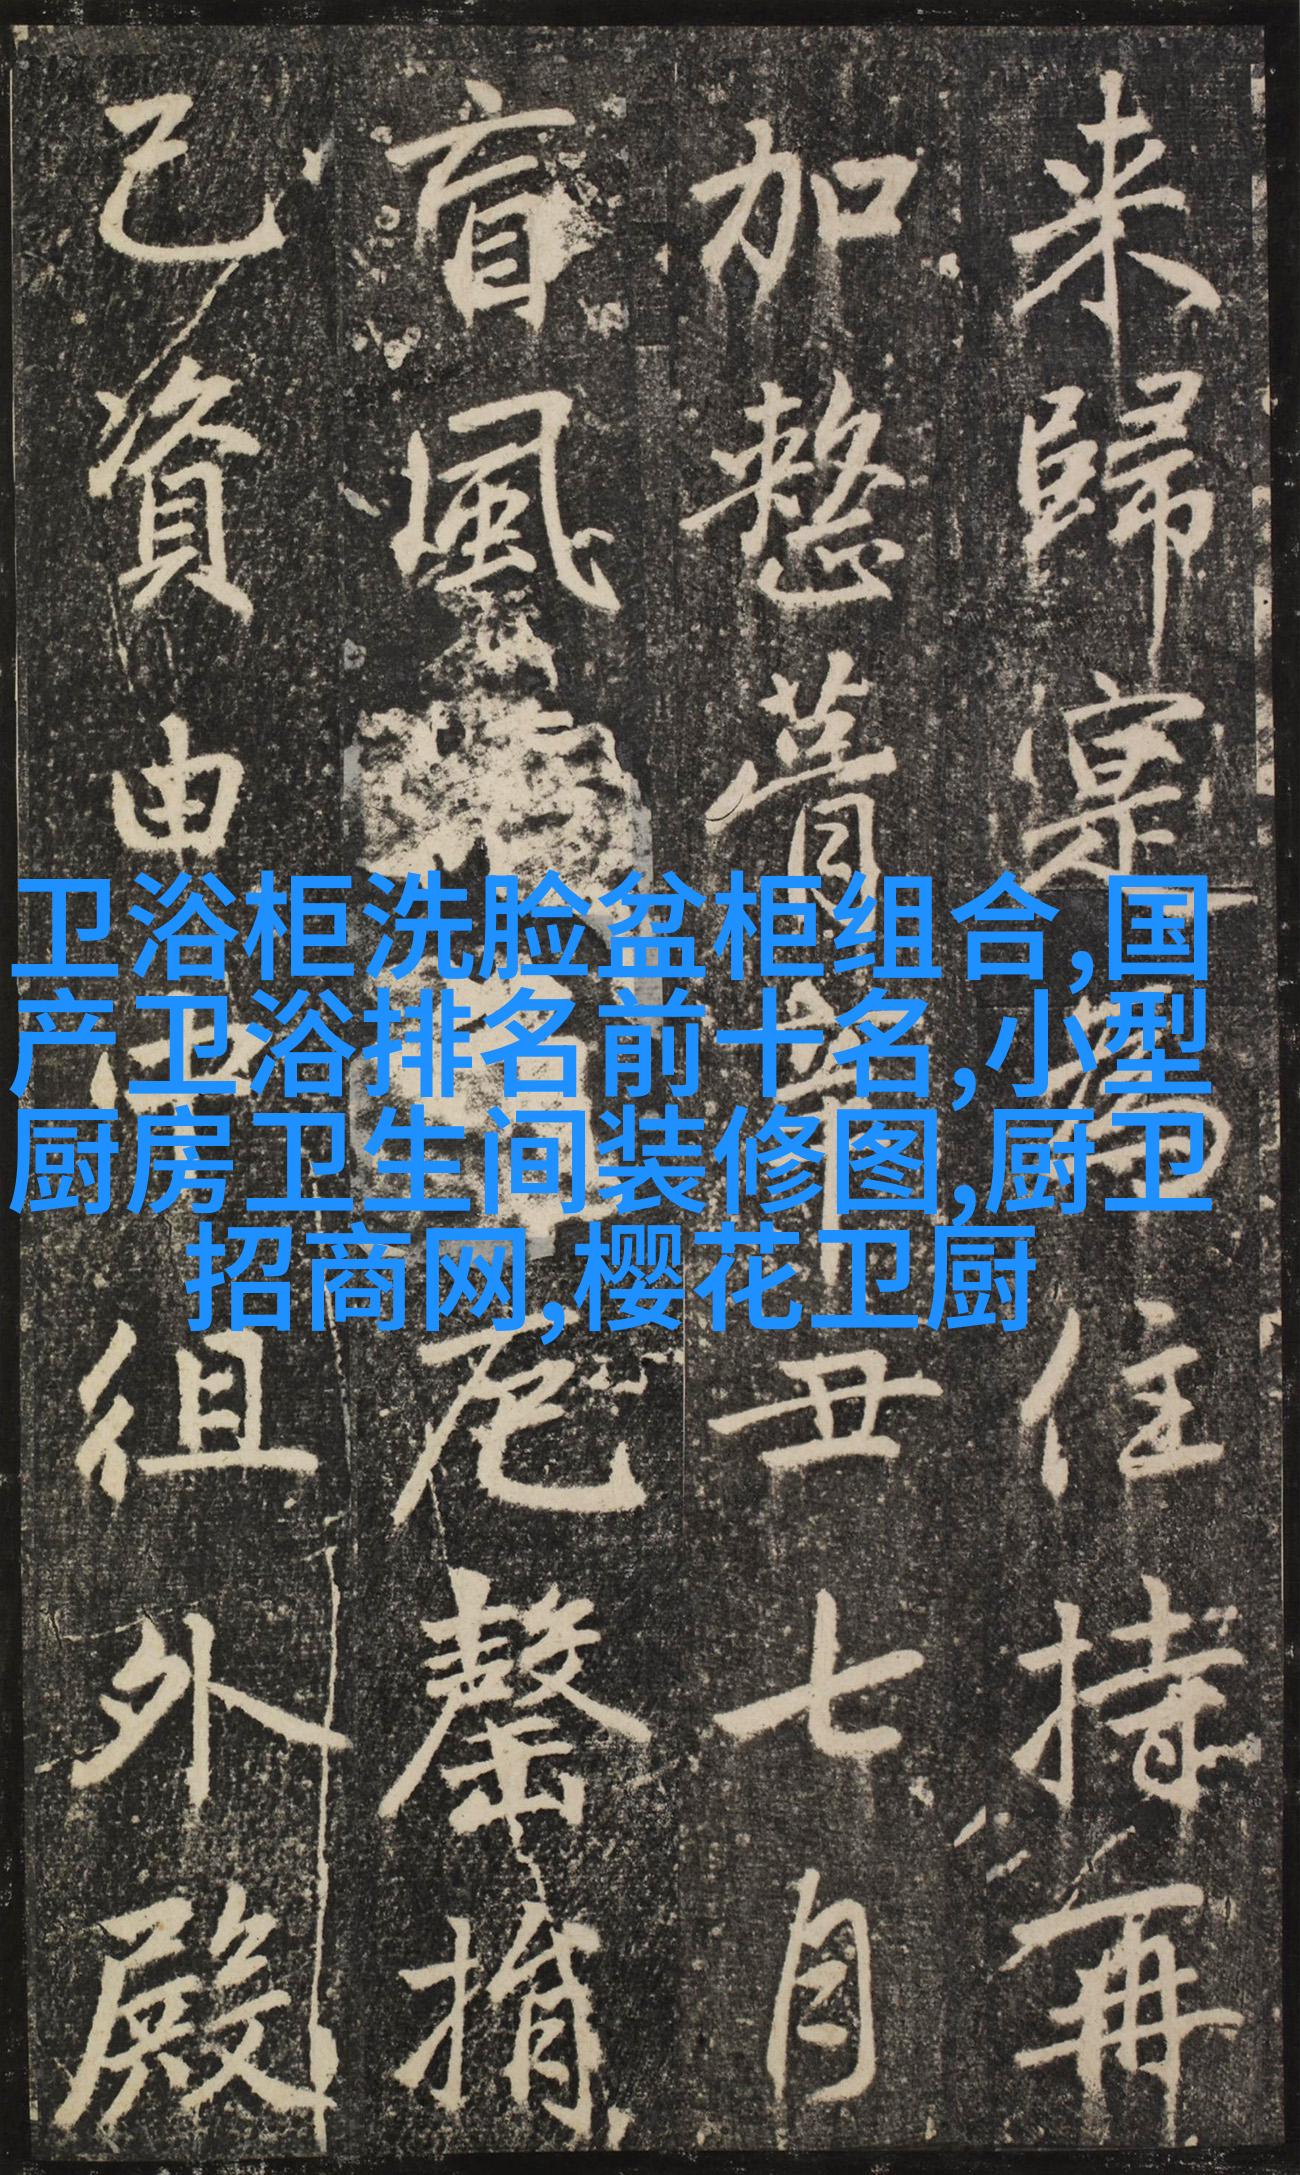 来歸寔
住持再
加整葺
丑七月
盲風
危罄捐
己資由
徂外殿
卫浴柜洗脸盆柜组合,国
产卫浴排名前十名,小型
厨房卫生间装修图,厨卫
招商网,樱花卫厨